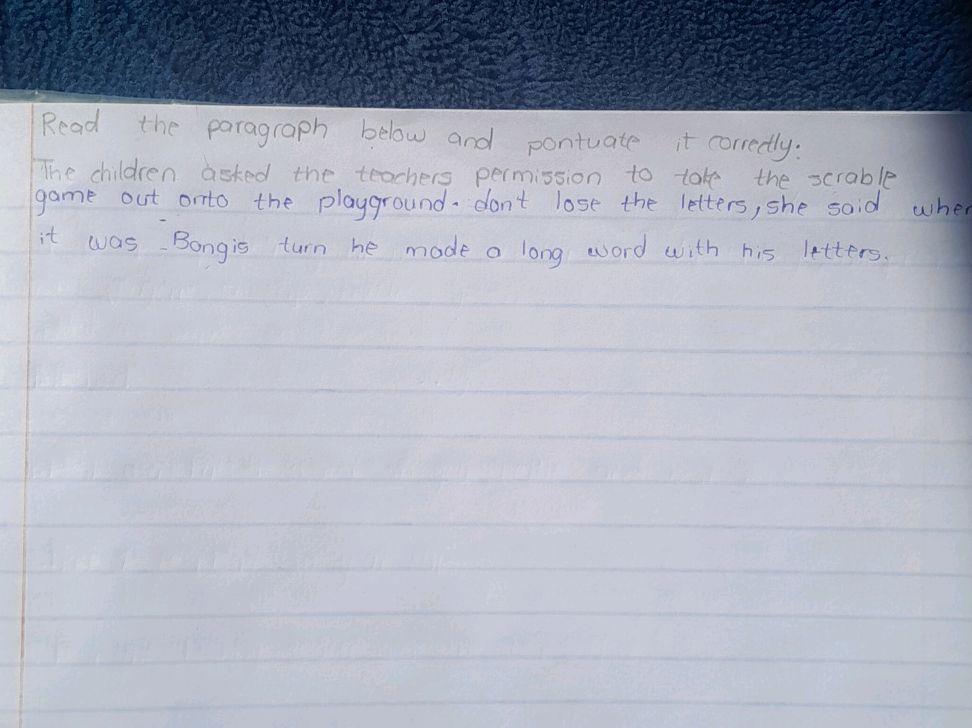 Read the paragraph below and pontuate it correctly.
The children asked the teachers permission to take the scrable
game out onto the playground. don't lose the letters, she said when
it was Bongis turn he made a long word with his letters.